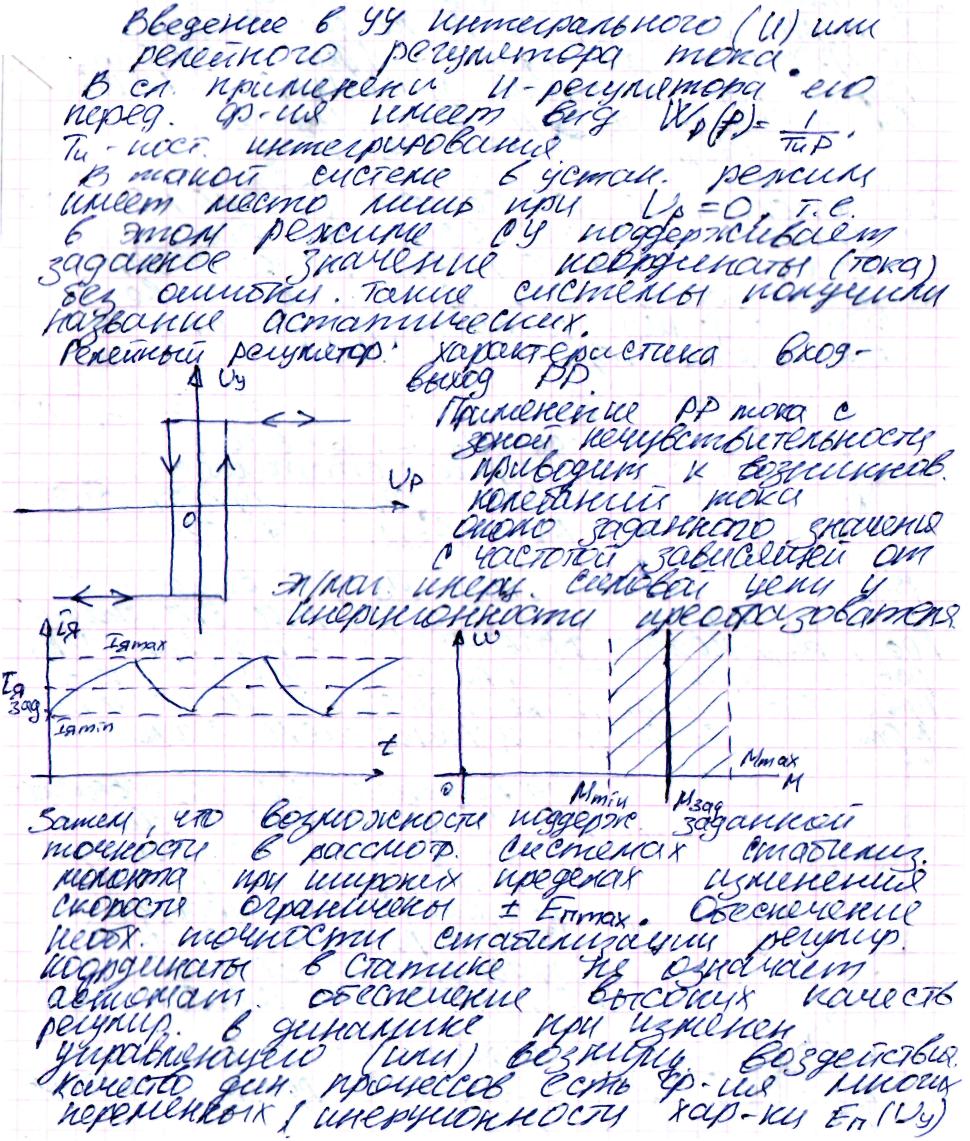 Введение в УУ интегрального (И) или
релейного регулятора тока.
В сл. применени И-регулятора его
перед. ф-ия имеет вид Wр(р)= 1/Tиp.
Ти - пост. интегрирования
В такой системе в устан. режим
имеет место лишь при Uр=0, т.е.
в этом режиме СУ поддерживает
заданное значение координаты (тока)
без ошибки. Такие системы получили
название астатических.
Релейный регулятор: характеристика вход-
выход РР.
Uу
Применение РР тока с
зоной нечувствительности
приводит к возникнов.
Uр
колебаний тока
0
около заданного значения
с частотой, зависящей от
эл/маг. инерц. силовой цепи и
инерционности преобразователя
iя
Iяmax
Iя
зад
Iяmin
t
ω
0
Mmin
Mзад
Mmax
M
Затем, что возможности поддерж. заданной
точности в рассмотр. системах стабилиз.
момента при широких пределах изменения
скорости ограничены ± Eпmax. Обеспечение
необх. точности стабилизации регулир.
координаты в статике не означает
автомат. обеспечение высоких качеств
регулир. в динамике при изменен
управляющего (или) возмущ. воздействия.
Качество дин. процессов есть ф-ия многих
переменных инерционности хар-ки Eп(Uу)